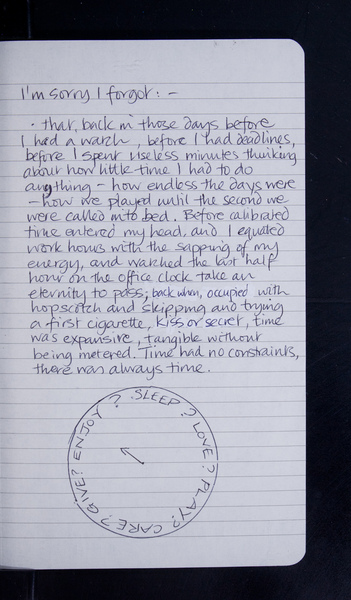 I'm sorry I forgot: -
· that, back in those days before
I had a watch, before I had deadlines,
before I spent useless minutes thinking
about how little time I had to do
anything - how endless the days were
- how we played until the second we
were called into bed. Before calibrated
time entered my head, and I equated
work hours with the sapping of my
energy, and watched the last half
hour on the office clock take an
eternity to pass; back when, occupied with
hopscotch and skipping and trying
a first cigarette, kiss or secret, time
was expansive, tangible without
being metered. Time had no constraints,
there was always time.
SLEEP? LOVE? PLAY? CARE? GIVE? ENJOY?